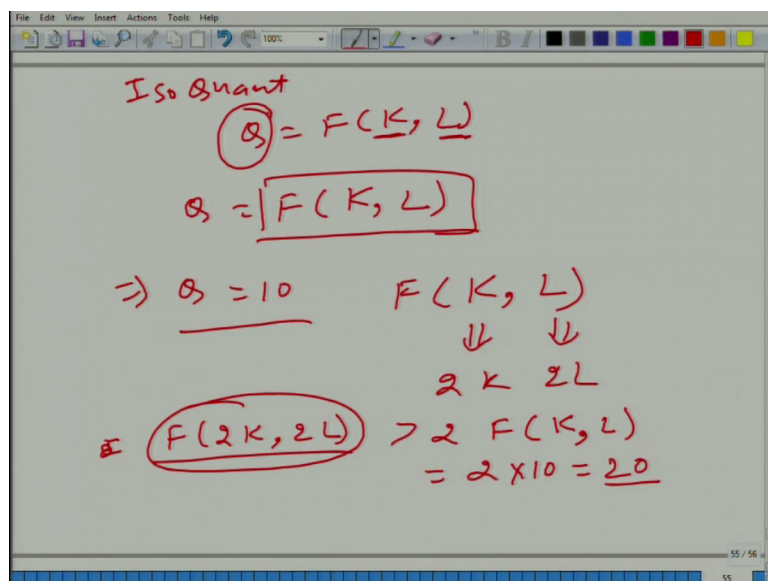 File Edit View Insert Actions Tools Help
100%
B I
Iso Quant
Q = F(K, L)
Q = F(K, L)
⇒ Q = 10 F(K, L)
⇓ ⇓
2K 2L
F(2K, 2L) > 2 F(K, L)
= 2 × 10 = 20
55 / 56
55